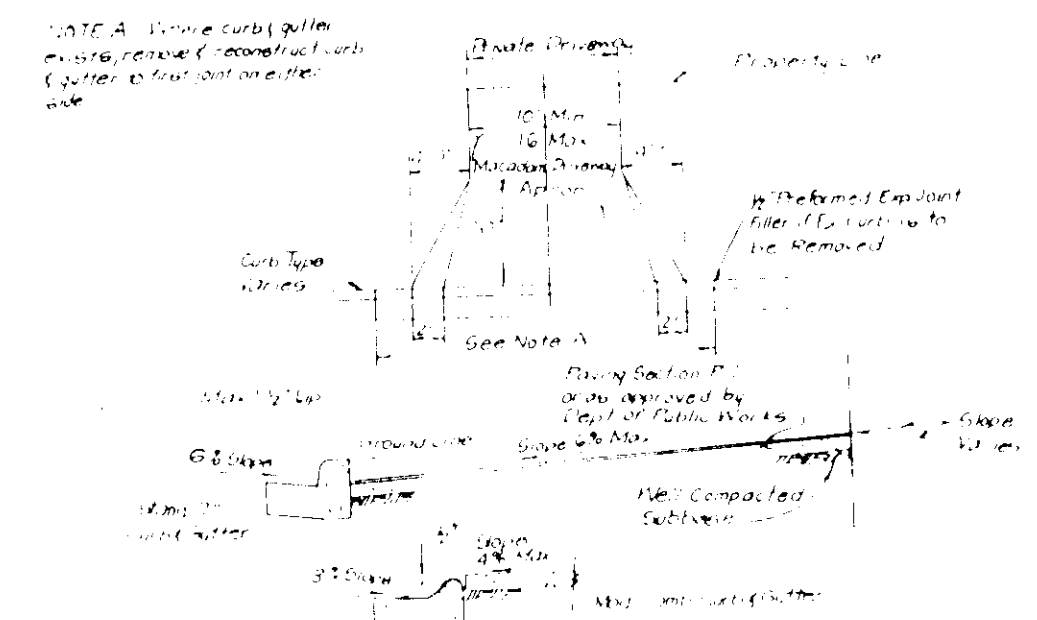 NOTE A Where curb & gutter
exists, remove & reconstruct curb
& gutter to first joint on either
side
Private Driveway
Property Line
10' Min
16 Max
Macadam Driveway
Apron
4'
½" Preformed Exp Joint
Filler if Ex curb is to
be Removed
Curb Type
Varies
2'
2'
See Note A
Paving Section P
or as approved by
Dept of Public Works
Max 1½" Lip
Ground Line
Slope 6% Max
Slope
Varies
6% Slope
Well Compacted
Subbase
Curb & Gutter
Slope
4% Max
3% Slope
Mod Comb Curb & Gutter